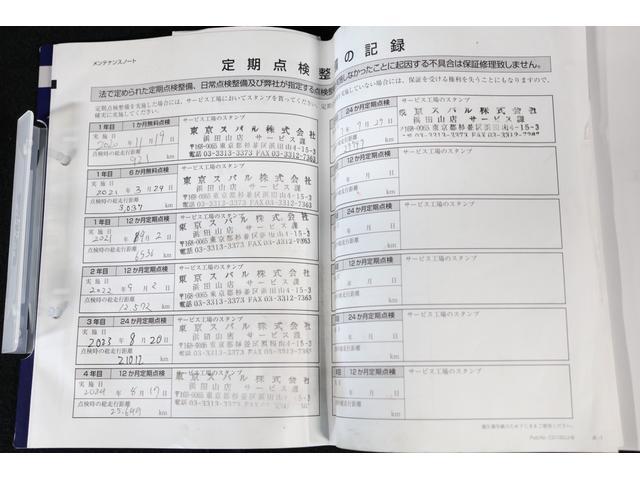 メンテナンスノート
定期点検整
備の記録
法で定められた定期点検整備、日常点検整備及び弊社が指定する点検整
しなかったことに起因する不具合は保証修理致しません。
定期点検整備を実施した場合には、サービス工場においてスタンプを買ってください。
確実に実施してください。
整備を実施していない場合には、保証を受ける権利を失うことにもなりますので、
1年目 1か月無料点検
実施日
2020年11月19日
点検時の総走行距離
921 km
サービス工場のスタンプ
東京スバル株式会社
浜田山店 サービス課
〒168-0065 東京都杉並区浜田山4-15-3
電話 03-3313-3373 FAX 03-3312-7363
1年目 6か月無料点検
実施日
2021年3月24日
点検時の総走行距離
3,037 km
サービス工場のスタンプ
東京スバル株式会社
浜田山店 サービス課
〒168-0065 東京都杉並区浜田山4-15-3
電話 03-3313-3373 FAX 03-3312-7363
1年目 12か月定期点検
実施日
2021年9月2日
点検時の総走行距離
6536 km
サービス工場のスタンプ
東京スバル株式会社
浜田山店 サービス課
〒168-0065 東京都杉並区浜田山4-15-3
電話 03-3313-3373 FAX 03-3312-7363
2年目 12か月定期点検
実施日
2022年9月2日
点検時の総走行距離
12,572 km
サービス工場のスタンプ
東京スバル株式会社
浜田山店 サービス課
〒168-0065 東京都杉並区浜田山4-15-3
電話 03-3313-3373 FAX 03-3312-7363
3年目 24か月定期点検
実施日
2023年8月20日
点検時の総走行距離
21012 km
サービス工場のスタンプ
東京スバル株式会社
浜田山店 サービス課
〒168-0065 東京都杉並区浜田山4-15-3
電話 03-3313-3373 FAX 03-3312-7363
4年目 12か月定期点検
実施日
2024年8月17日
点検時の総走行距離
25,649 km
サービス工場のスタンプ
東京スバル株式会社
浜田山店 サービス課
〒168-0065 東京都杉並区浜田山4-15-3
電話 03-3313-3373 FAX 03-3312-7363
24か月定期点検
年7月27日
km
サービス工場のスタンプ
東京スバル株式会社
浜田山店 サービス課
〒168-0065 東京都杉並区浜田山4-15-3
電話 03-3313-3373 FAX 03-3312-7363
12か月定期点検
年 月 日
km
サービス工場のスタンプ
24か月定期点検
年 月 日
km
サービス工場のスタンプ
12か月定期点検
月 日
km
サービス工場のスタンプ
24か月定期点検
月 日
km
サービス工場のスタンプ
12か月定期点検
月 日
km
サービス工場のスタンプ